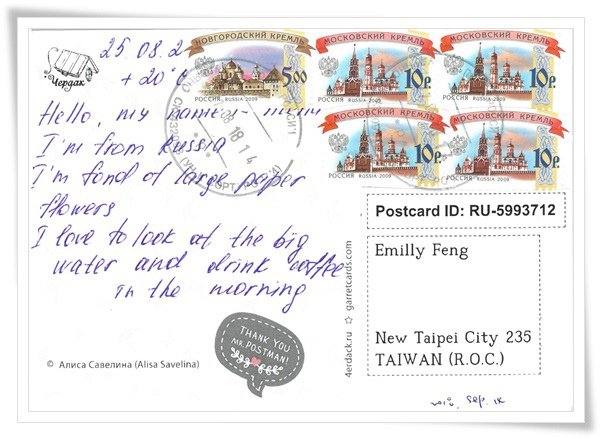 Чердак
25.08.2
+20°C
НОВГОРОДСКИЙ КРЕМЛЬ
5.00
РОССИЯ RUSSIA 2009
МОСКОВСКИЙ КРЕМЛЬ
10Р.
РОССИЯ RUSSIA 2009
МОСКОВСКИЙ КРЕМЛЬ
10Р.
РОССИЯ RUSSIA 2009
МОСКОВСКИЙ КРЕМЛЬ
10Р.
РОССИЯ RUSSIA 2009
МОСКОВСКИЙ КРЕМЛЬ
10Р.
РОССИЯ RUSSIA 2009
Hello, my name
I'm from Russia
I'm fond of large paper
flowers
I love to look at the big
water and drink coffee
in the morning
THANK YOU
MR. POSTMAN!
© Алиса Савелина (Alisa Savelina)
4erdack.ru ☆ garretcards.com
Postcard ID: RU-5993712
Emilly Feng
New Taipei City 235
TAIWAN (R.O.C.)